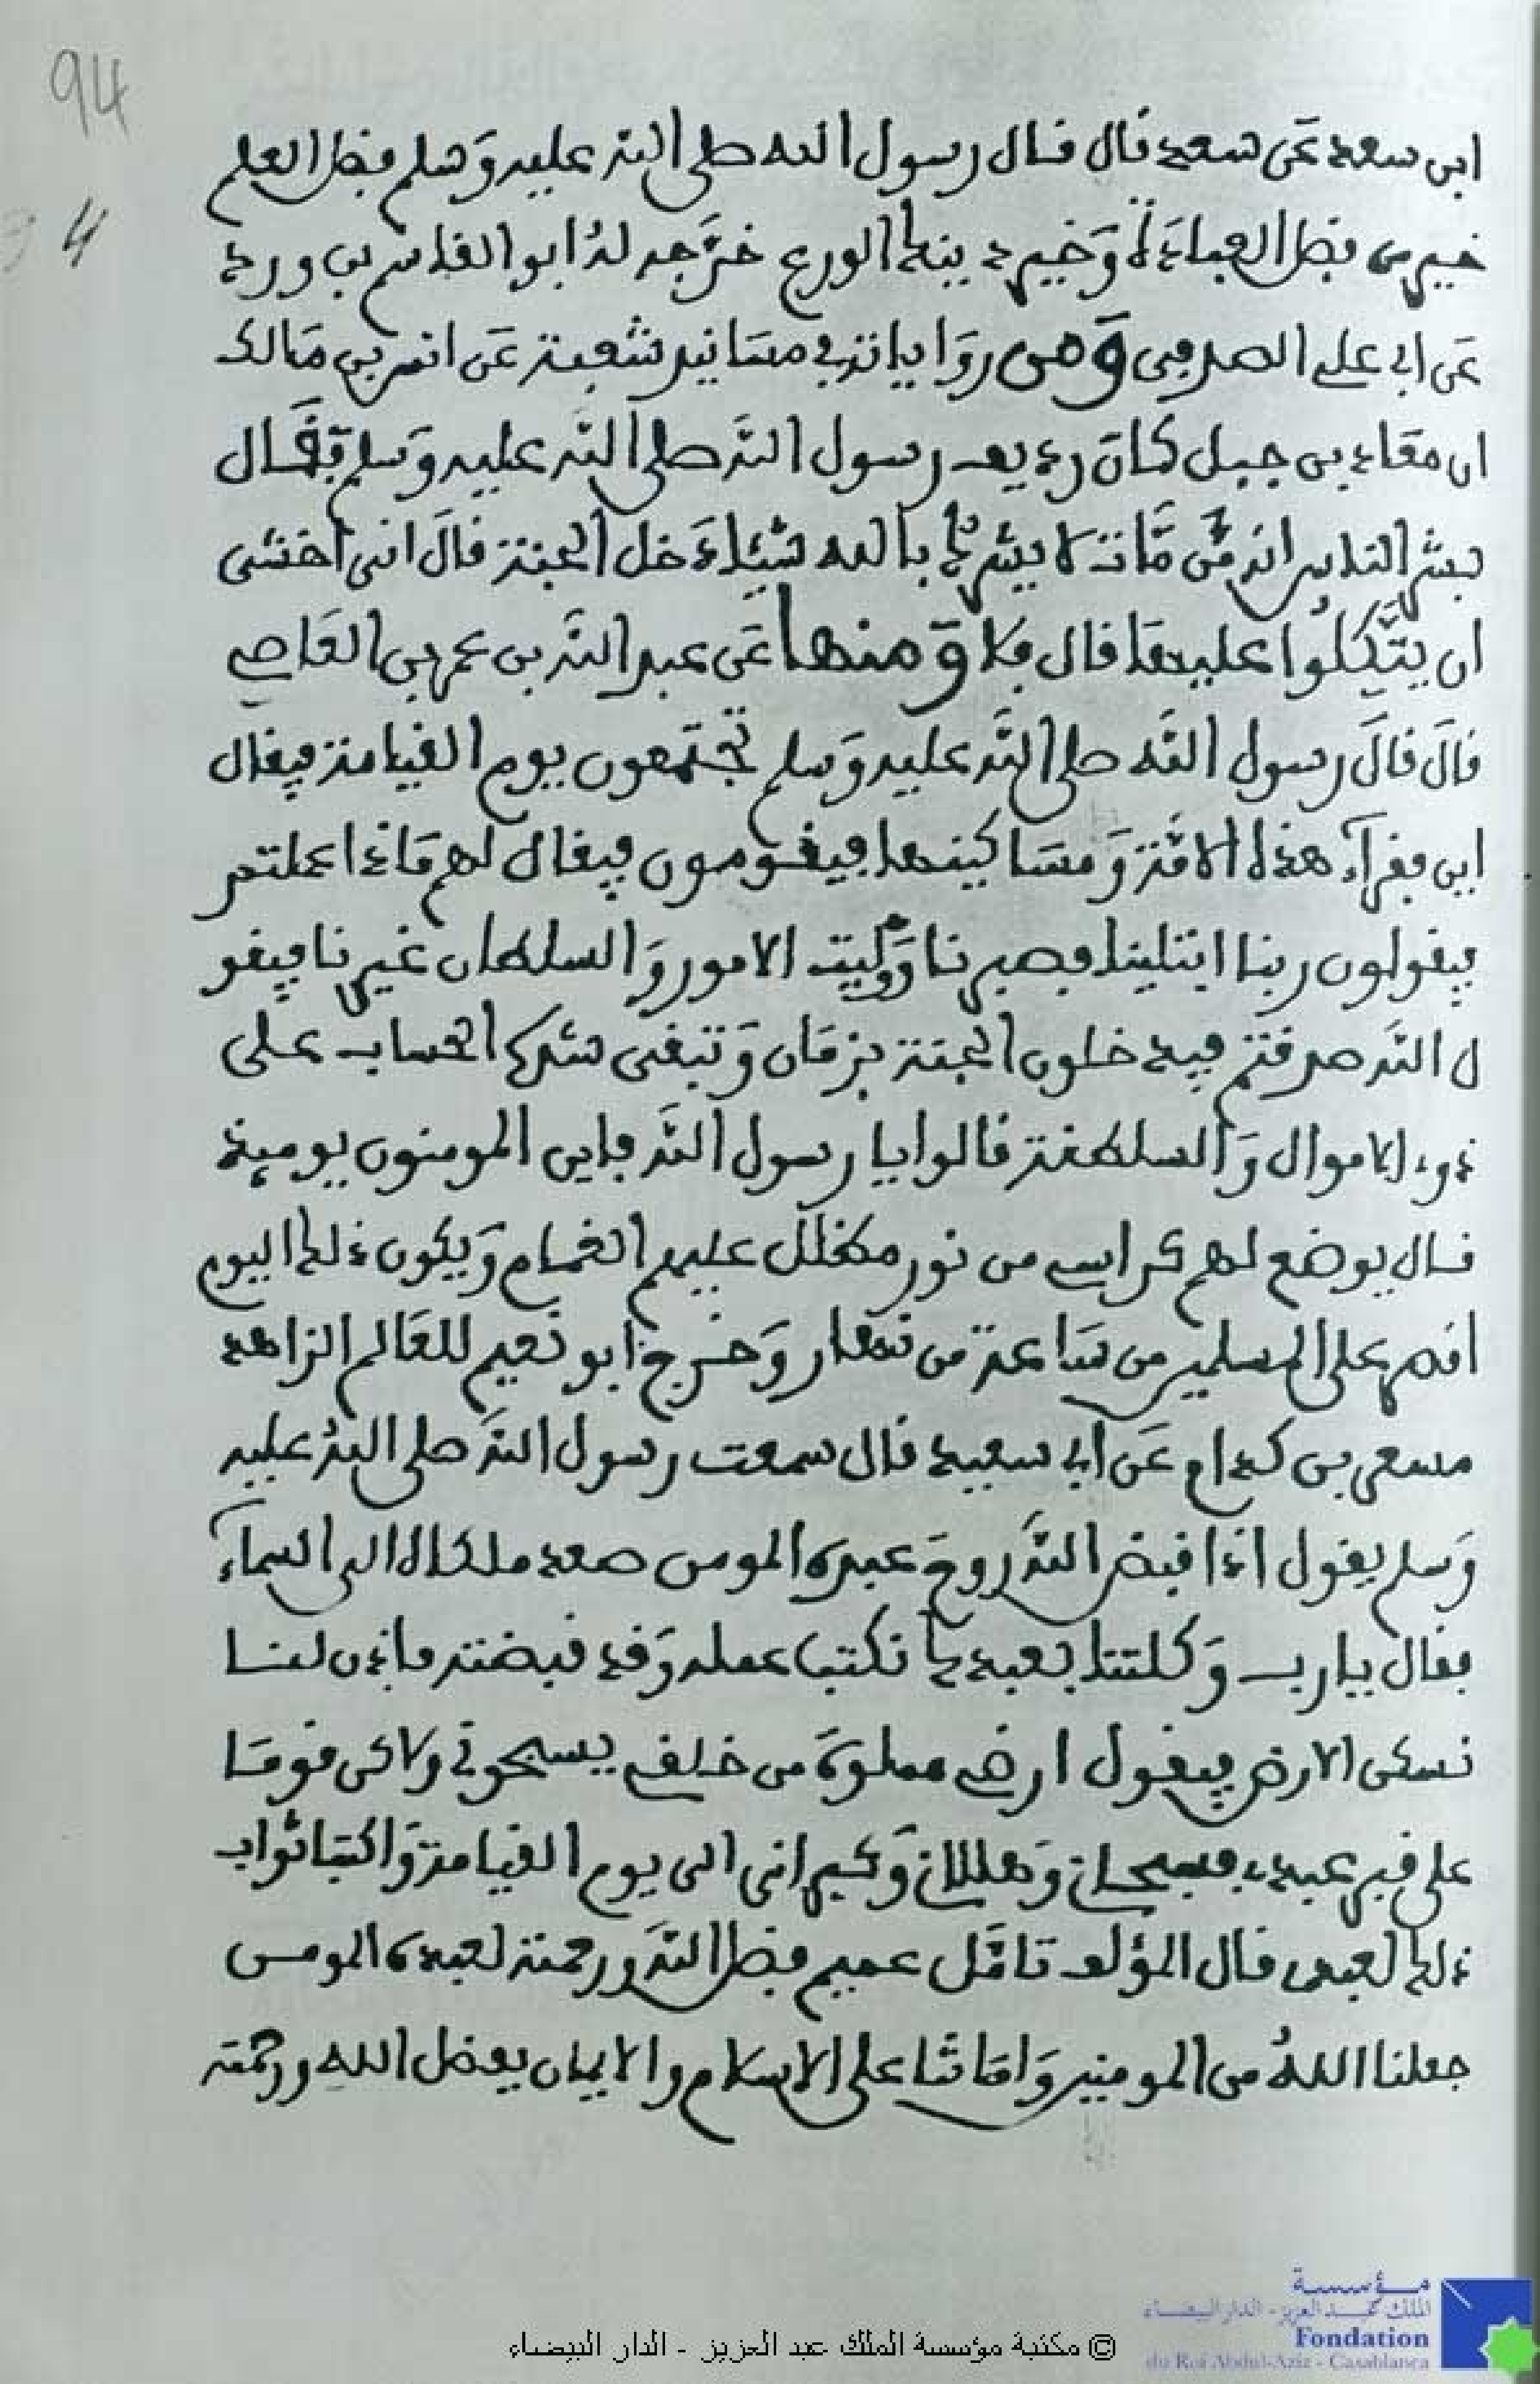 94
4
ابن سعد عن سعد قال قال رسول الله صلى الله عليه وسلم فضل العلم
خير من فضل العبادة وخير دينكم الورع خرجه له ابو القاسم بن ورد
عن ابي علي الصدفي ومن رواياته في مسانيد شعبة عن انس بن مالك
ان معاذ بن جبل كان رديف رسول الله صلى الله عليه وسلم فقال
بشر الناس انه من مات لا يشرك بالله شيئا دخل الجنة قال اني اخشى
ان يتكلوا عليها قال فلا ومنها عن عبد الله بن عمر بن العاصي
قال قال رسول الله صلى الله عليه وسلم تجتمعون يوم القيامة فيقال
اين فقرآء هذه الامة ومساكينها فيقومون فيقال لهم ماذا عملتم
فيقولون ربنا ابتلينا فصبرنا ووليت الامور والسلطان غيرنا فيقو
ل الله صدقتم فيدخلون الجنة بزمان وتبقى شدة الحساب على
ذوي الاموال والسلطنة قالوا يا رسول الله فاين المومنون يوميذ
قال يوضع لهم كراسي من نور مظلل عليهم الغمام ويكون ذلك اليوم
اقصر على المسلمين من ساعة من نهار وخرج ابو نعيم للعالم الزاهد
مسعر بن كدام عن ابي سعيد قال سمعت رسول الله صلى الله عليه
وسلم يقول اذا قبض الله روح عبده المومن صعد ملكاه الى السمآء
فقال يا رب وكلتنا بعبدك نكتب عمله وقد قبضته فاذن لنا
نسكن الارض فيقول ارضي مملوة من خلقي يسبحوني ولاكن قوما
على قبر عبدي فسبحاني وهللاني وكبراني الى يوم القيامة واكتبا ثواب
ذلك لعبدي قال المؤلف تامل عميم فضل الله ورحمته لعبده المومن
جعلنا الله من المومنين واماتنا على الاسلام والايمان بفضل الله ورحمته
مؤسسة
الملك عبد العزيز - الدار البيضاء
Fondation
du Roi Abdul-Aziz - Casablanca
© مكتبة مؤسسة الملك عبد العزيز - الدار البيضاء